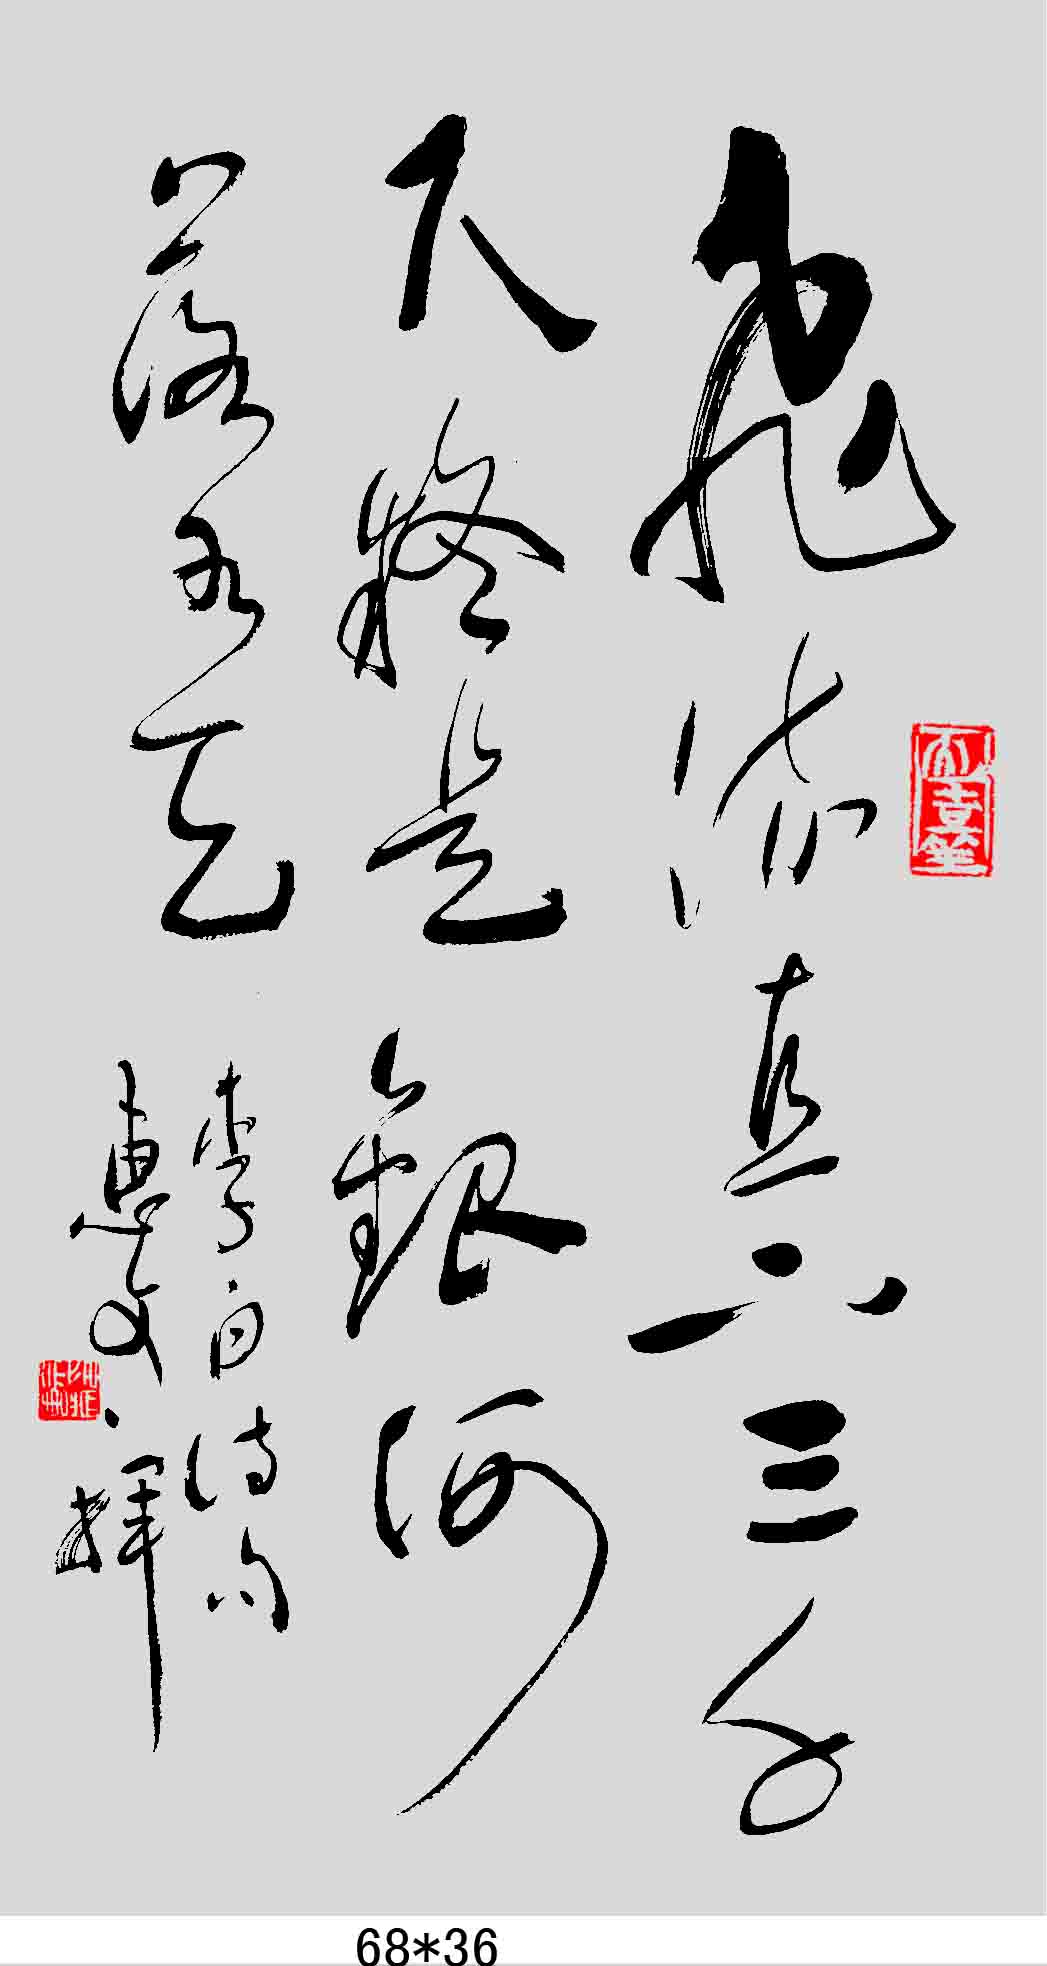 飛流直下三千
尺疑是銀河
落九天
李白詩句
惠文揮
68*36